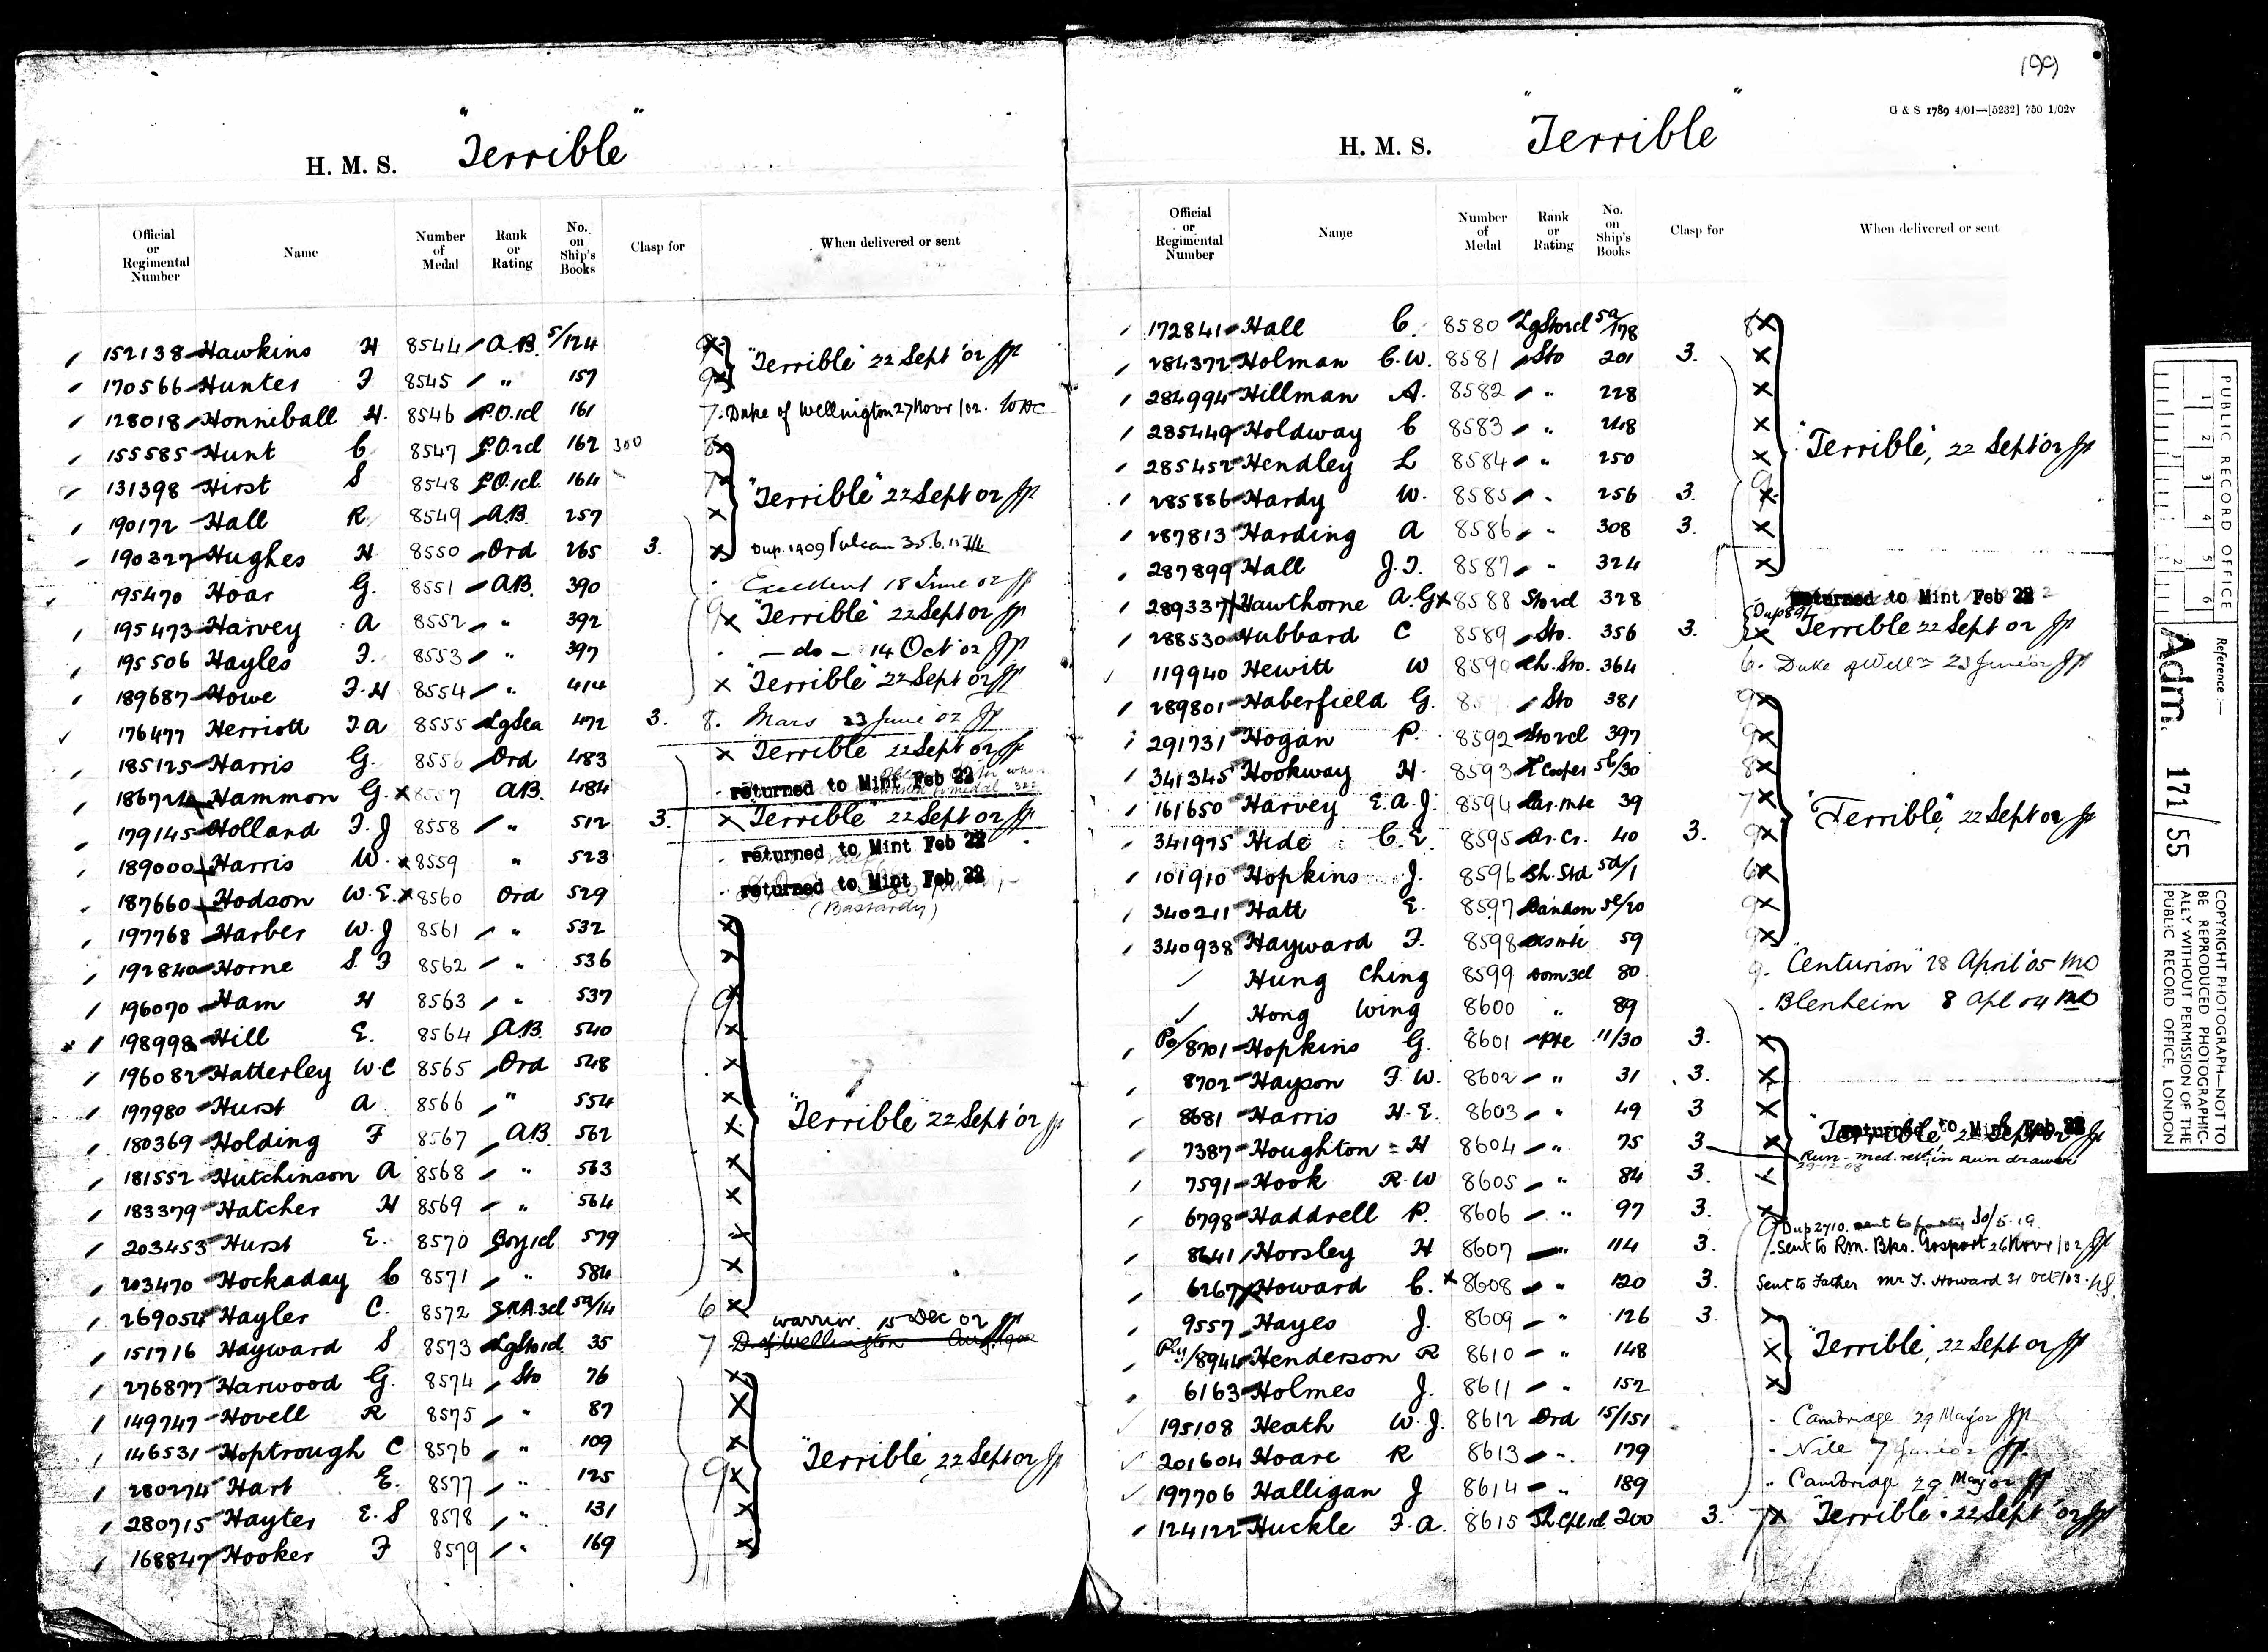 199
G & S 1789 4/01—[5232] 750 1/02v
H. M. S. "Terrible"
Official or Regimental Number Name Number of Medal Rank or Rating No. on Ship's Books Clasp for When delivered or sent
152138 Hawkins H 8544 A.B. 5/124
170566 Hunter F 8545 " 157 "Terrible" 22 Sept '02
128018 Honniball H. 8546 P.O.1cl 161 7. Duke of Wellington 27 Novr /02.
155585 Hunt C 8547 P.O.2cl 162 300 8
131398 Hirst S 8548 P.O.1cl. 164 7 "Terrible" 22 Sept 02
190172 Hall R 8549 A.B. 257
190327 Hughes H 8550 Ord 265 3. Dup. 1909 Vulcan
195470 Hoar G. 8551 A.B. 390 Excellent 18 June 02
195473 Harvey A 8552 " 392 9 "Terrible" 22 Sept 02
195506 Hayles F. 8553 " 397 — do — 14 Oct 02
189687 Howe F.H 8554 " 414 "Terrible" 22 Sept 02
176477 Herriott F.A 8555 LgSea 472 3. 8. Mars 23 June 02
185125 Harris G. 8556 Ord 483 Terrible 22 Sept 02
186724 Hammon G. x 8557 A.B. 484 returned to Mint Feb 22
179145 Holland F.J 8558 " 512 3. "Terrible" 22 Sept 02
189000 Harris W. x 8559 " 523 returned to Mint Feb 22
187660 Hodson W.E. x 8560 Ord 529 returned to Mint Feb 22
(Bastardy)
197768 Harber W.J 8561 " 532
192840 Horne S.F 8562 " 536
196070 Ham H 8563 " 537 9
198998 Hill E. 8564 A.B. 540
196082 Hatterley W.C 8565 Ord 548
197980 Hurst A 8566 " 554
180369 Holding F 8567 A.B 562 "Terrible" 22 Sept '02
181552 Hutchinson A 8568 " 563
183379 Hatcher H 8569 " 564
203453 Hurst E. 8570 Boy 1cl 579
203470 Hockaday C 8571 " 584
269054 Hayler C. 8572 S.R.A.3cl 5a/14 6
Warrior. 15 Dec 02
151716 Hayward S 8573 LgSto1cl 35 7 D of Wellington
276877 Harwood G. 8574 Sto 76
149747 Hovell R 8575 " 87
146531 Hoptrough C 8576 " 109
280274 Hart E. 8577 " 125 9 "Terrible", 22 Sept 02
280715 Hayter E.S 8578 " 131
168847 Hooker F 8579 " 169
H. M. S. "Terrible"
Official or Regimental Number Name Number of Medal Rank or Rating No. on Ship's Books Clasp for When delivered or sent
172841 Hall C. 8580 LgSto1cl 5a/178 8
284372 Holman C.W. 8581 Sto 201 3.
284994 Hillman A. 8582 " 228
285449 Holdway C 8583 " 248 "Terrible", 22 Sept 02
285452 Hendley L 8584 " 250
285886 Hardy W. 8585 " 256 3. 9
287813 Harding A 8586 " 308 3.
287899 Hall J.F. 8587 " 324
289337 Hawthorne A.G x 8588 Sto2cl 328 returned to Mint Feb 22
288530 Hubbard C 8589 Sto. 356 3. Terrible 22 Sept 02
119940 Hewitt W 8590 Ch.Sto. 364 6. Duke of Welln 23 June 02
289801 Haberfield G. Sto 381 9
291731 Hogan P. 8592 Sto2cl 397 9
341345 Hookway H. 8593 Cooper 5b/30 8
161650 Harvey E.A.J. 8594 Car.Mte 39 7 "Terrible", 22 Sept 02
341975 Hide C.E. 8595 Ar.Cr. 40 3. 9
101910 Hopkins J. 8596 Sh.Std 5d/1 6
340211 Hatt E. 8597 Bandsn 5e/20 9
340938 Hayward F. 8598 59 9
Hung Ching 8599 Dom3cl 80 9. "Centurion" 28 April '05
Hong Wing 8600 " 89 Blenheim 8 Apl 04
Po/8701 Hopkins G. 8601 Pte 11/30 3.
8702 Hayson F.W. 8602 " 31 3.
8681 Harris H.E. 8603 " 49 3
7387 Houghton H 8604 " 75 3 "Terrible", 22 Sept 02 returned to Mint Feb 22
Run - med. retd in Run drawer
29-12-08
7591 Hook R.W 8605 " 84 3.
6798 Haddrell P. 8606 " 97 3.
Dup 2710. sent to 30/5.19
8641 Horsley H 8607 " 114 3. Sent to Rm. Bks. Gosport 26 Novr /02
6267 Howard C. x 8608 " 120 3. Sent to Father Mr J. Howard 31 Oct /03
9557 Hayes J. 8609 " 126 3.
Ply/8944 Henderson R 8610 " 148 "Terrible", 22 Sept 02
6163 Holmes J. 8611 " 152
195108 Heath W.J. 8612 Ord 15/151 Cambridge 29 May 02
201604 Hoare R 8613 " 179 Nile 7 June 02
197706 Halligan J 8614 " 189 Cambridge 29 May 02
124122 Huckle F.A. 8615 200 3. 7 Terrible 22 Sept '02
PUBLIC RECORD OFFICE
1 2 3 4 5 6
1 2
Reference:—
Adm. 171/55
COPYRIGHT PHOTOGRAPH—NOT TO BE REPRODUCED PHOTOGRAPHICALLY WITHOUT PERMISSION OF THE PUBLIC RECORD OFFICE, LONDON